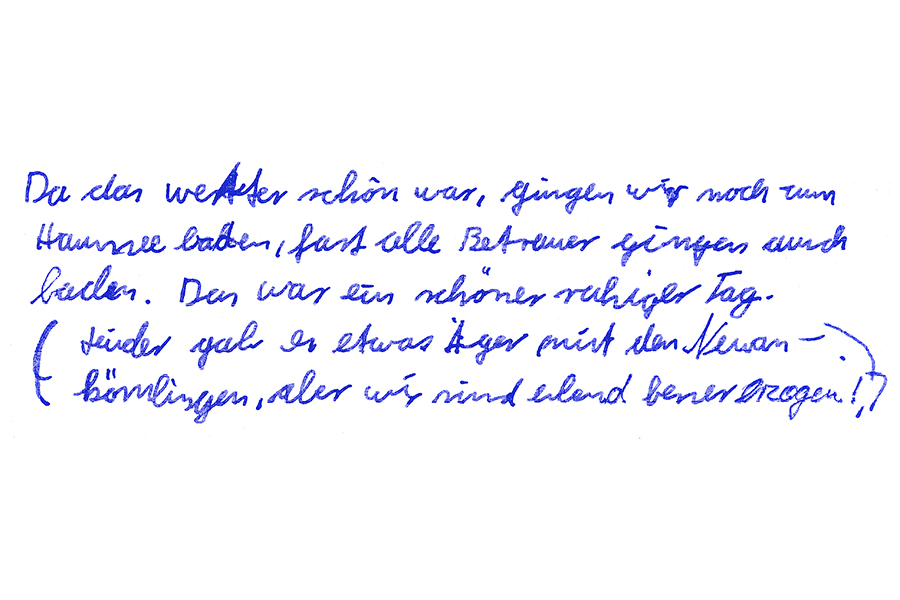 Da das wetter schön war, gingen wir noch zum
Haussee baden, fast alle Betreuer gingen auch
baden. Das war ein schöner ruhiger Tag.
( Leider gab es etwas Äger mit den Neuan-
kömlingen, aber wir sind eben besser erzogen!,)